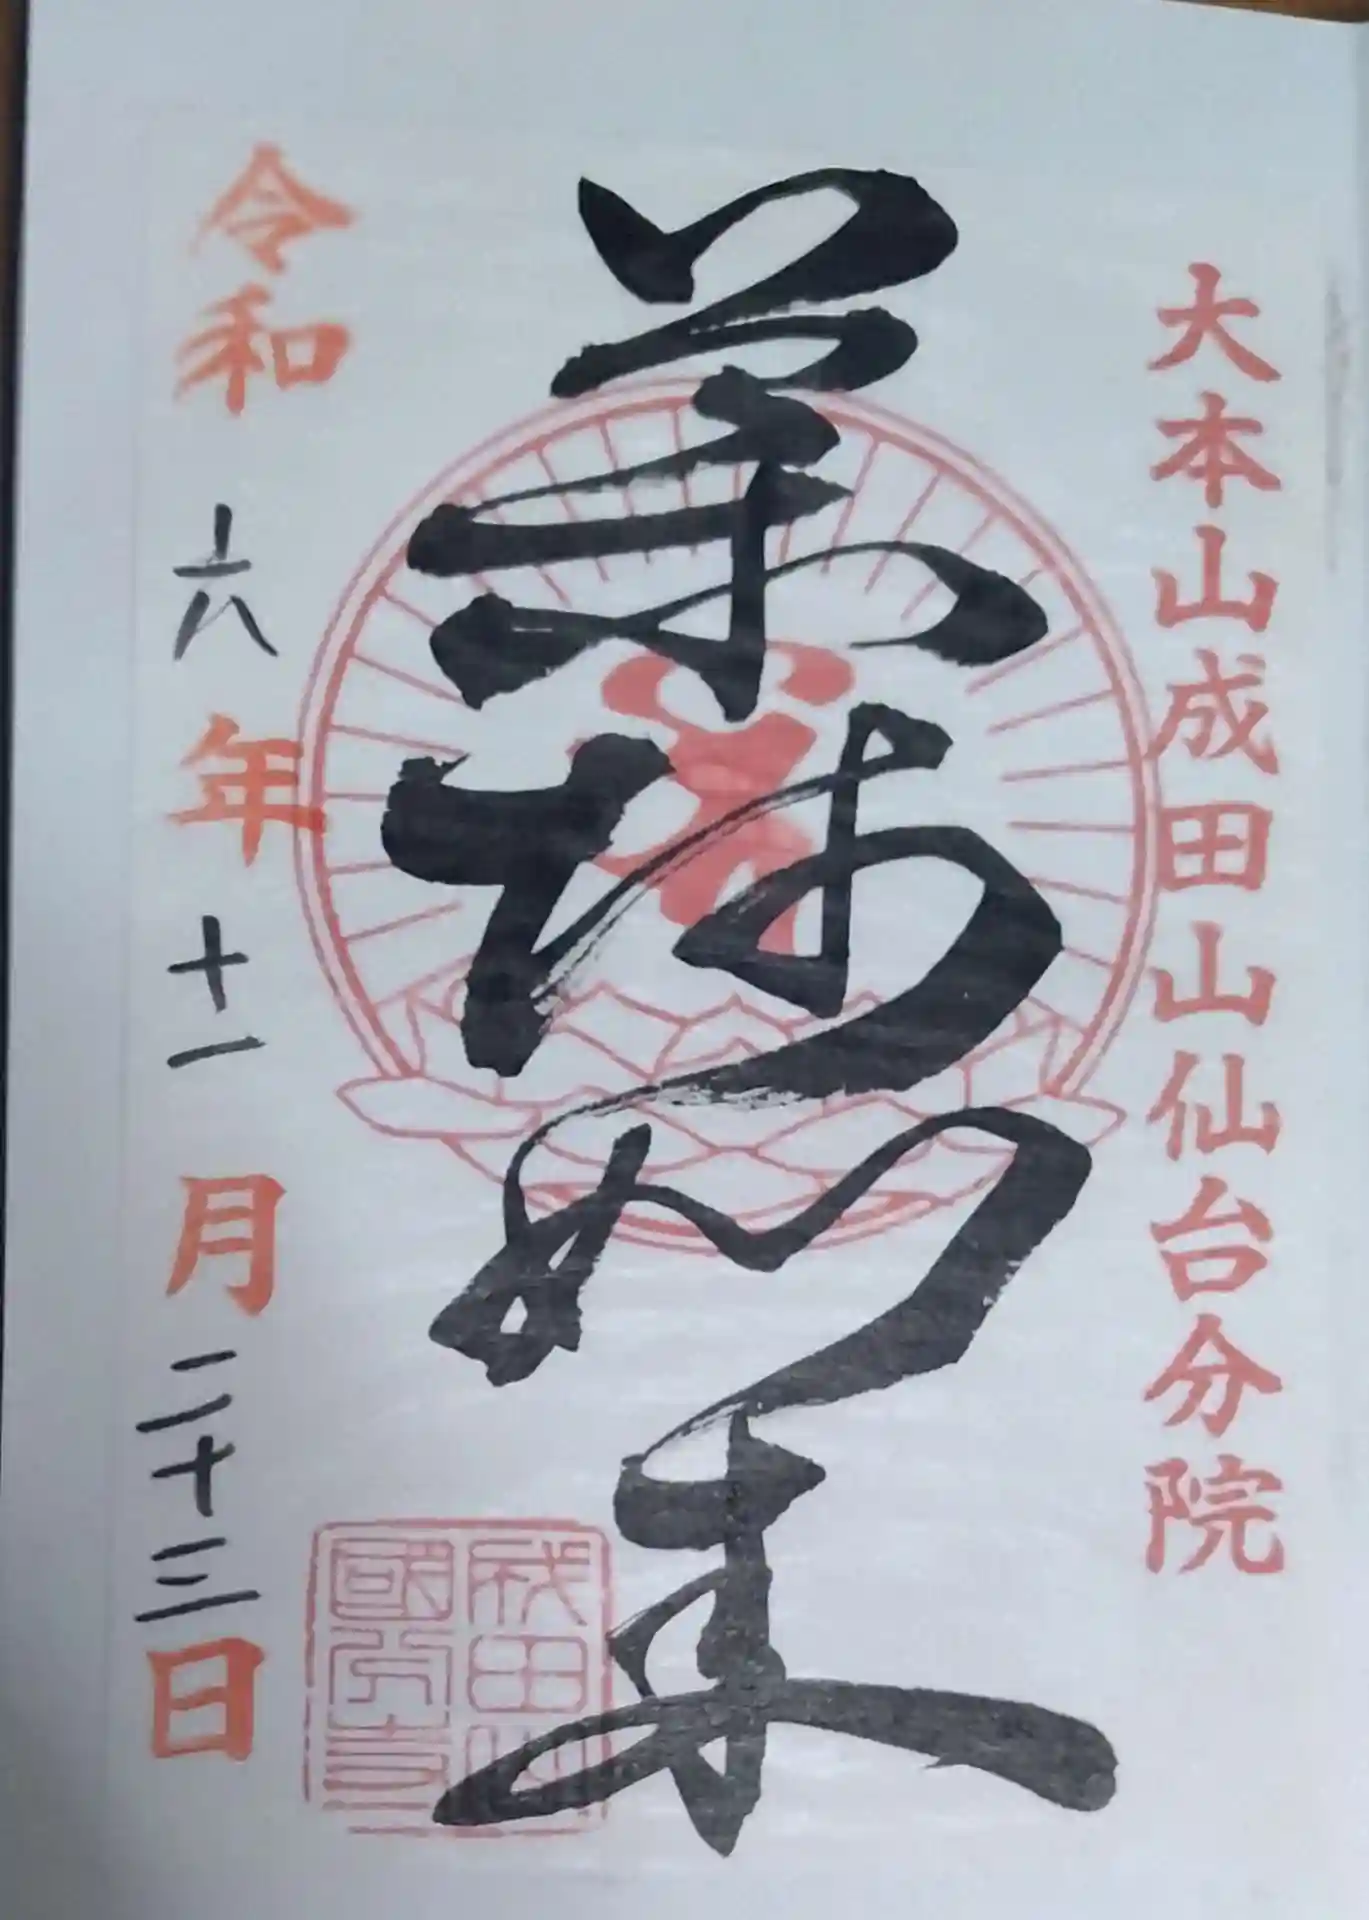 大本山成田山仙台分院
薬師如来
令和六年十一月二十三日
成田山
國分寺